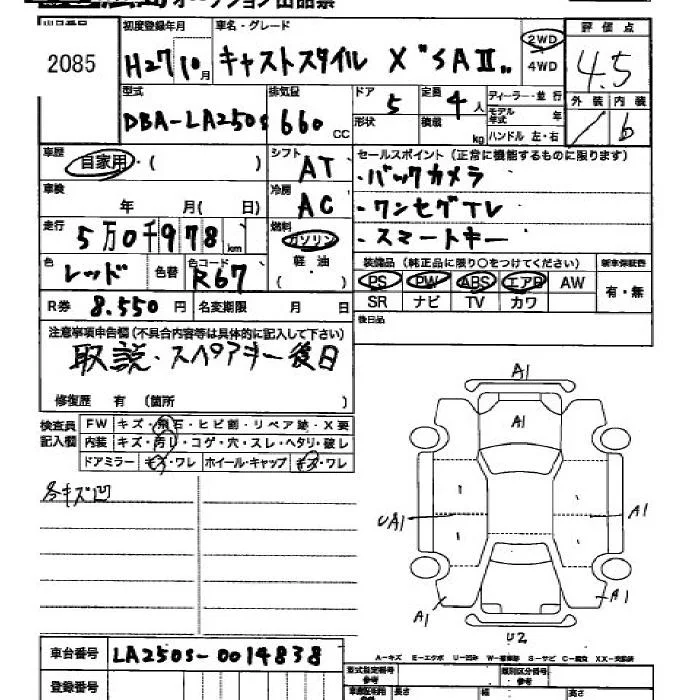 オークション出品票
出品番号
2085
初度登録年月
H27 10月
車名・グレード
キャストスタイル X "SAⅡ"
2WD
4WD
評価点
4.5
外装 内装
b
型式
DBA-LA250S
排気量
660 CC
ドア 5
形状
定員 4人
積載 kg
ディーラー・並行
モデル年式 年
ハンドル 左・右
車歴
自家用・( )
車検
年 月( 日)
走行
5万0千978km
色
レッド
色替
色コード
R67
シフト
AT
冷房
AC
燃料
ガソリン
軽油
( )
セールスポイント(正常に機能するものに限ります)
・バックカメラ
・ワンセグTV
・スマートキー
装備品(純正品に限り○をつけてください)
PS PW ABS エアB AW
SR ナビ TV カワ
新車保証書
有・無
後日品
R券 8,550円
名変期限 月 日
注意事項申告欄(不具合内容等は具体的に記入して下さい)
取説・スペアキー後日
修復歴 有(箇所 )
検査員記入欄
FW キズ・飛石・ヒビ割・リペア跡・X要
内装 キズ・汚レ・コゲ・穴・スレ・ヘタリ・破レ
ドアミラー キズ・ワレ ホイール・キャップ キズ・ワレ
各キズ凹
A1
A1
UA1
A1
A1
A1
U2
車台番号
LA250S-0014838
登録番号
A-キズ E-エクボ U-凹み W-補修跡 S-サビ C-腐食 XX-交換済
型式指定番号
参考
類別区分番号
参考
長さ 幅 高さ